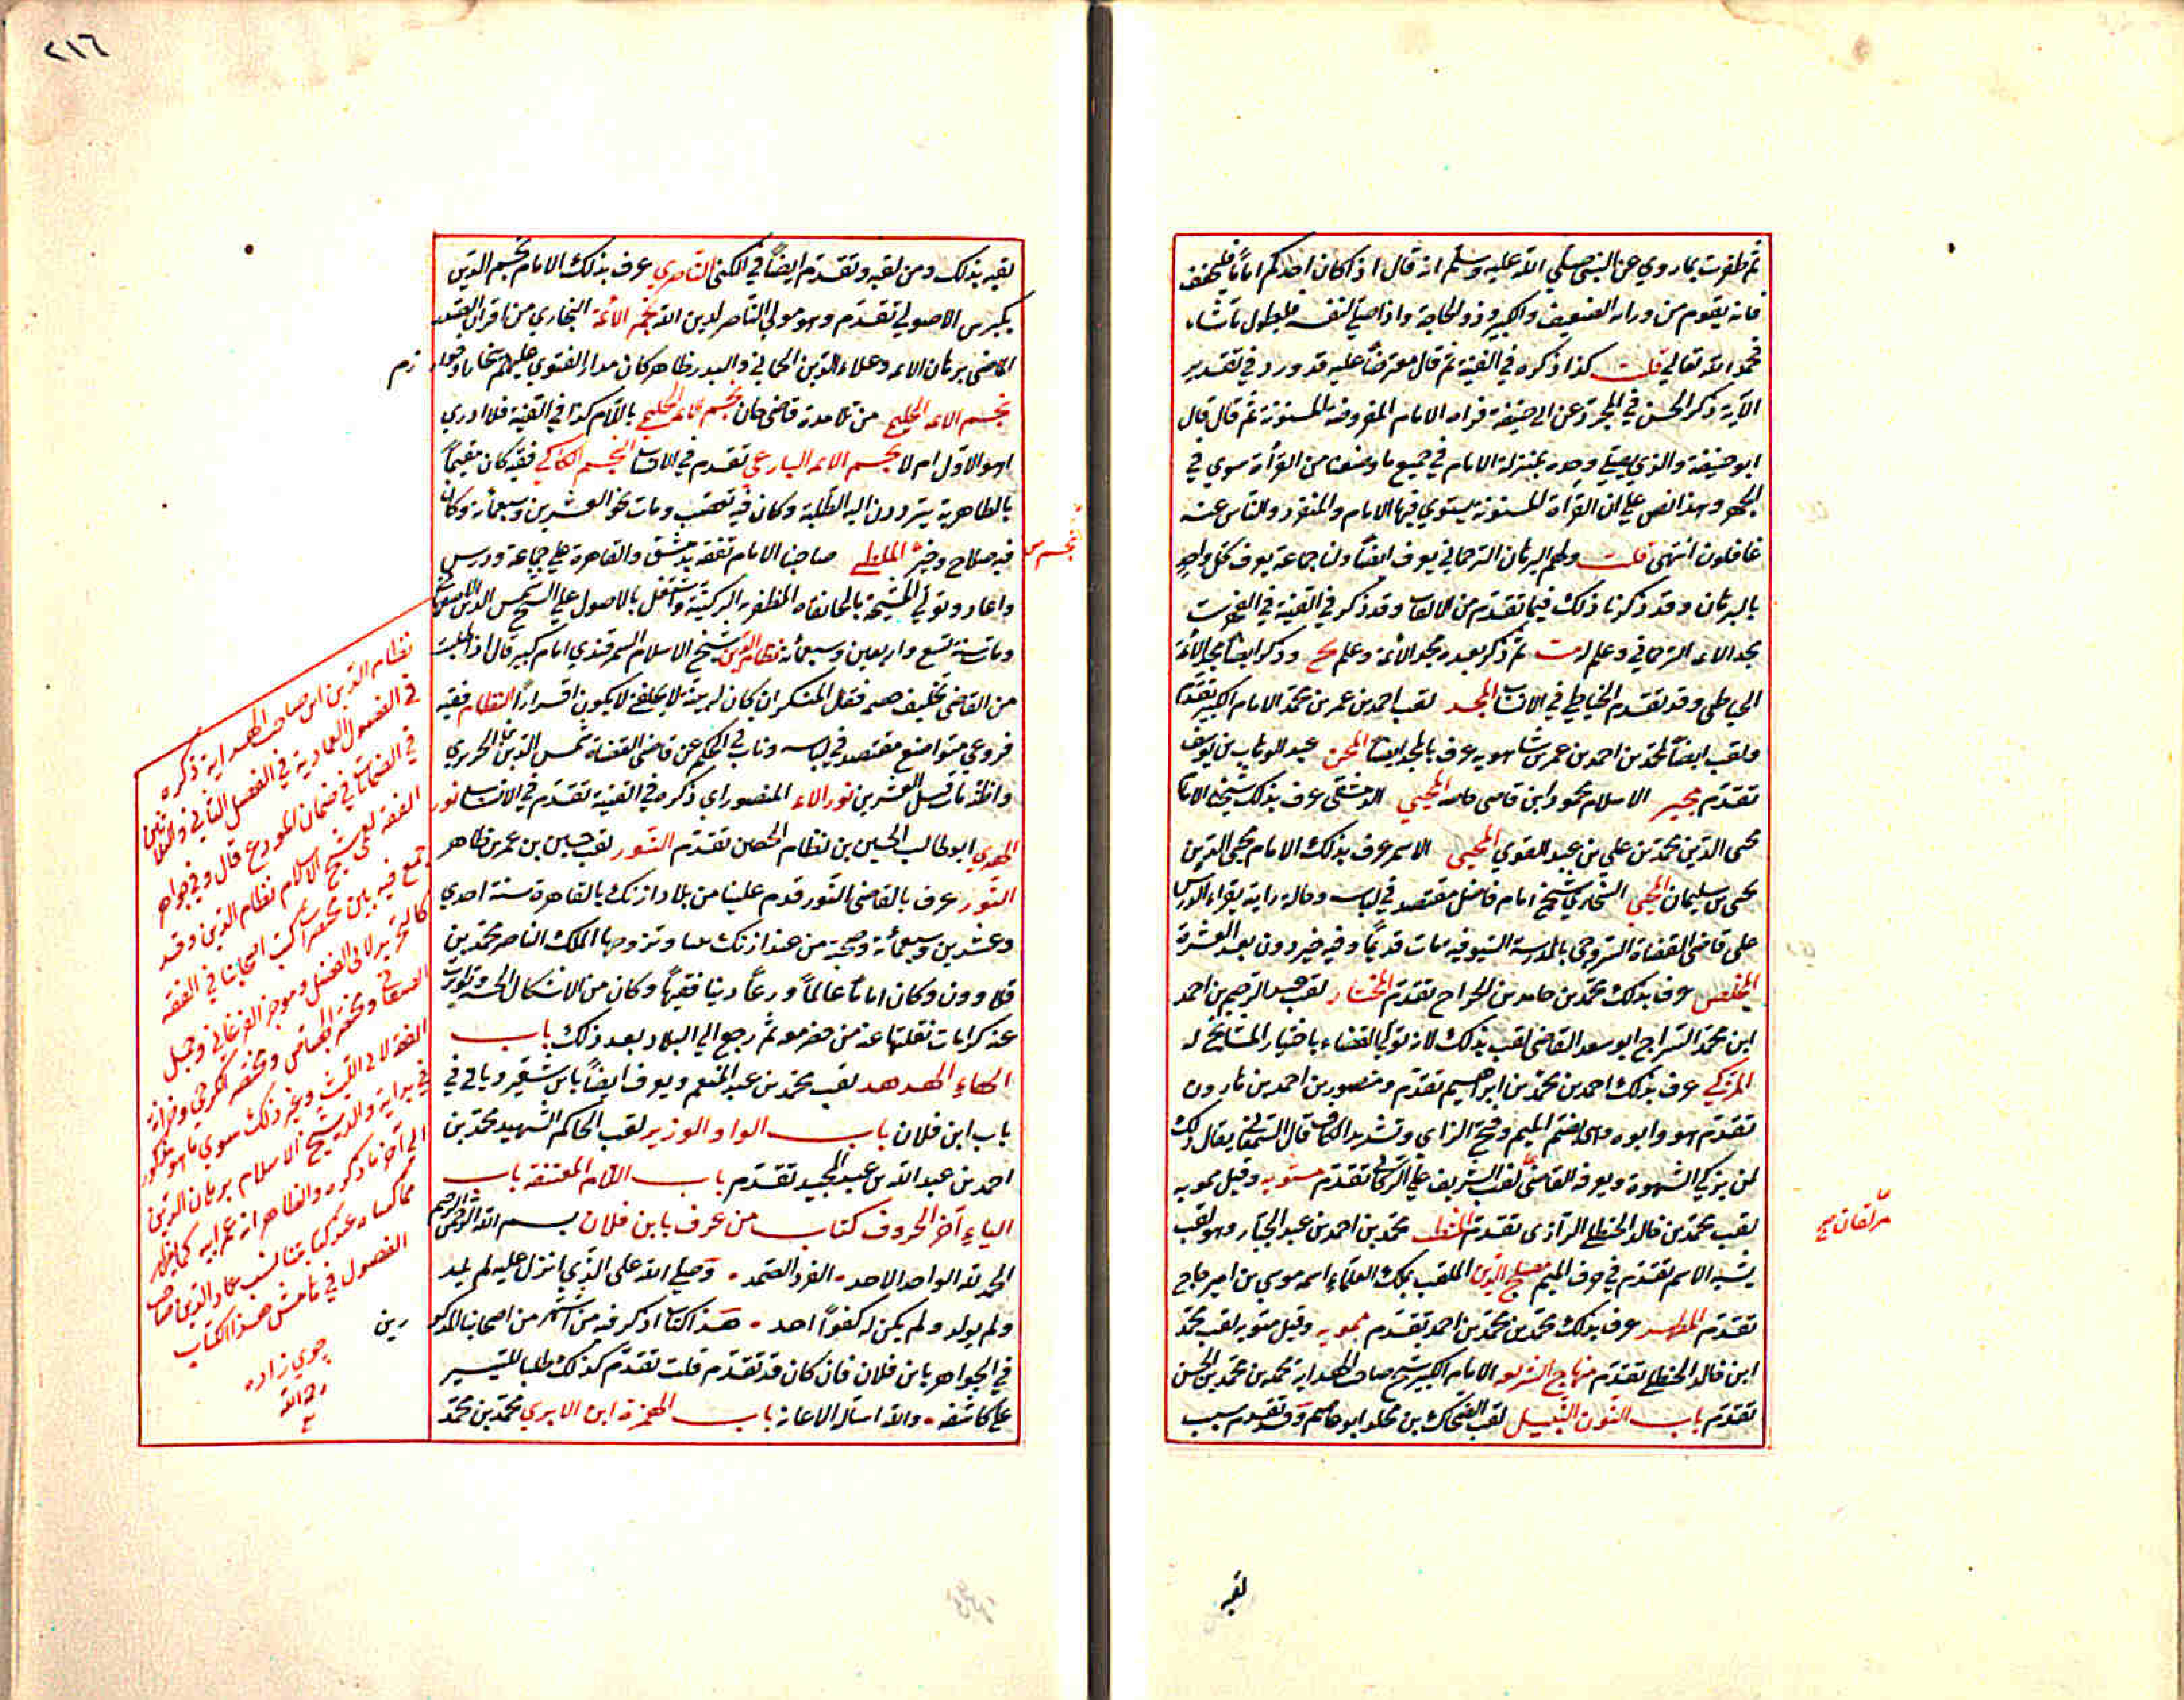 ثم ظفرت بما روي عن النبي صلي الله عليه وسلم انه قال اذا كان احدكم اماما فليخفف
فانه يقوم من ورائه الضعيف والكبير وذو الحاجة واذا صلي لنفسه فليطول ما شاء
فحمد الله تعالي قلت كذا ذكره في القنية ثم قال معترضا عليه قد ورد في تقدير
الآية ذكر الحسن في المجرد عن ابي حنيفة قراءة الامام المفروضه المسنونة ثم قال قال
ابو حنيفة والذي يصلي وحده بمنزلة الامام في جميع ما وصفنا من القرأة سوي في
الجهر وهذا نص علي ان القرأة المسنونة يستوي فيها الامام والمنفرد والناس عنه
غافلون انتهى قلت ولهم البرهان الترجماني يعرف ايضا ولنا جماعة يعرف كل واحد
بالبرهان وقد ذكرنا ذلك فيما تقدم من الالقاب وقد ذكر في القنية في الفهرست
مجد الائمه الترجماني وعلم له مت ثم ذكر بعده مجد الائمة وعلم مح وذكر ايضا مجد الائمة
الخياطي وقد تقدم الخياطي في الانساب المجد لقب احمد بن عمر بن محمد الامام الكبير تقدم
ولقب ايضا لمحمد بن احمد بن عمر شاهويه عرف بالمجد ايضا المجن عبد الوهاب بن يوسف
تقدم مجير الاسلام محمود ابن قاضي المحيي الدمشقي عرف بذلك شيخنا الامام
محي الدين محمد بن علي بن عبد القوي المحيي الاسمر عرف بذلك الامام محي الدين
يحي بن سليمان المحيي البخاري شيخ امام فاضل مقتصد في لباسه وحاله رايته يقراء الدرس
علي قاضي القضاة السروجي بالمدرسة السيوفيه مات قديما وفيه خير دون بعد العشرة
المخلص عرف بذلك محمد بن حامد بن الجراح تقدم المختار لقب عبد الرحيم بن احمد
ابن محمد السراج ابو سعد القاضي لقب بذلك لانه تولي القضاء باختيار المشايخ له
المزكي عرف بذلك احمد بن محمد بن ابراهيم تقدم ومنصور بن احمد بن هارون
تقدم هو وابوه والمزكي بضم الميم وفتح الزاي وتشديد الكاف قال السمعاني يقال ذلك
لمن يزكي الشهود ويعرفه القاضي لقب الشريف علي التركماني تقدم مستويه وقيل ممويه
لقب محمد بن خالد الحنظلي الرازي تقدم محمد بن احمد بن عبد الجبار وهو لقب
يشبه الاسم تقدم في حرف الميم مصلح الدين الملقب بملك العلماء اسمه موسي بن امير حاج
تقدم المطهر عرف بذلك محمد بن محمد بن احمد تقدم ممويه وقيل متويه لقب محمد
ابن خالد الحنظلي تقدم منهاج الشريعه الامام الكبير شيخ صاحب الهداية محمد بن محمد بن الحسن
تقدم باب النون النبيل لقب الضحاك بن مخلد ابو عاصم وقد تقدم سبب
لقبه
٢١٦
لقبه بذلك ومن لقبه وتقدم ايضا في الكني الناصري عرف بذلك الامام نجم الدين
بكبرس الاصولي تقدم وهو مولي الناصر لدين الله نجم الائمة البخاري من اقران العقد
القاضي برهان الائمه وعلاء الدين الحمامي والبدر طاهر كان مدار الفتوي عليهم ببخارا وخوارزم
نجم الائمه الحليمي من تلامدة قاضي خان نجم الائمه الحليمي باللام كذا في القنية فلا ادري
اهو الاول ام لا نجم الائمه البارعي تقدم في الانساب النجم الكاكي فقيه كان مقيما
بالظاهرية يترددون اليه الطلبة وكان فيه تعصب ومات نحو العشرين وسبعمائة وكان
فيه صلاح وخير النجم الملطي صاحبنا الامام تفقه بدمشق والقاهرة علي جماعة ودرس
واعاد وتولي المشيخة بالخانقاه المظفريه الركنية واشتغل بالاصول علي الشيخ شمس الدين الاصفهاني
ومات سنة تسع واربعين وسبعمائه نظام الدين شيخ الاسلام السمرقندي امام كبير قال اذا طلبت
من القاضي تحليف خصمه فقل المنكر ان كان له بينة لا يحلفه لا يكون اقرارا النظام فقيه
فروعي متواضع مقتصد في لباسه وناب في الحكم عن قاضي القضاة شمس الدين الحريري
واظنه مات قبل العشرين نور الائمه المنصوراي ذكره في القنية تقدم في الانساب نور
الهدي ابو طالب الحسين بن نظام الحضرتين تقدم النور لقب حسين بن عمر بن طاهر
النور عرف بالقاضي النور قدم علينا من بلاد ازبك بالقاهرة سنة احدي
وعشرين وسبعمائة وصحبته من عند ازبك وتزوجها الملك الناصر محمد بن
قلاوون وكان اماما عالما ورعا دينا فقيها وكان من الاشكال الحسنه وتواترت
عنه كرامات نقلتها عنه من حضر معه ثم رجع الي البلاد بعد ذلك باب
الهاء الهدهد لقب محمد بن عبد المنعم ويعرف ايضا بابن شقير وياتي في
باب ابن فلان باب الواو الوزير لقب الحاكم الشهيد محمد بن
احمد بن عبد الله بن عبد المجيد تقدم باب اللام المعتنقه باب
الياء آخر الحروف كتاب من عرف بابن فلان بسم الله الرحمن الرحيم
الحمد لله الواحد الاحد الفرد الصمد وصلي الله علي الذي انزل عليه لم يلد
ولم يولد ولم يكن له كفوا احد هذا كتاب اذكر فيه من اشتهر من اصحابنا المذكورين
في الجواهر بابن فلان فان كان قد تقدم قلت تقدم كذلك طلبا للتيسير
علي كاشفه والله اسأل الاعانه باب الهمزة ابن الابري محمد بن محمد
نظام الدين ابن صاحب الهداية ذكره
في الفصول العمادية في الفصل الثاني والثلاثين
في الضمانات في ضمان المودع قال وفي جواهر
الفقه لعمي شيخ الاسلام نظام الدين وقد
جمع فيه بين مختصرات كتب اصحابنا في الفقه
كالتجريد لابي الفضل وموجز الفرغاني وجمل
ومختصر الجصاص ومختصر الكرخي وخزانة
الفقه لابي الليث وغير ذلك سوي ما هو مذكور
في بداية والده شيخ الاسلام برهان الدين
الي آخر ما ذكره والظاهر انه عم ابيه كما يظهر
مما كتبناه عند كتابتنا لنسب عماد الدين صاحب
الفصول في هامش هذا الكتاب
جوي زاده
رحمه الله